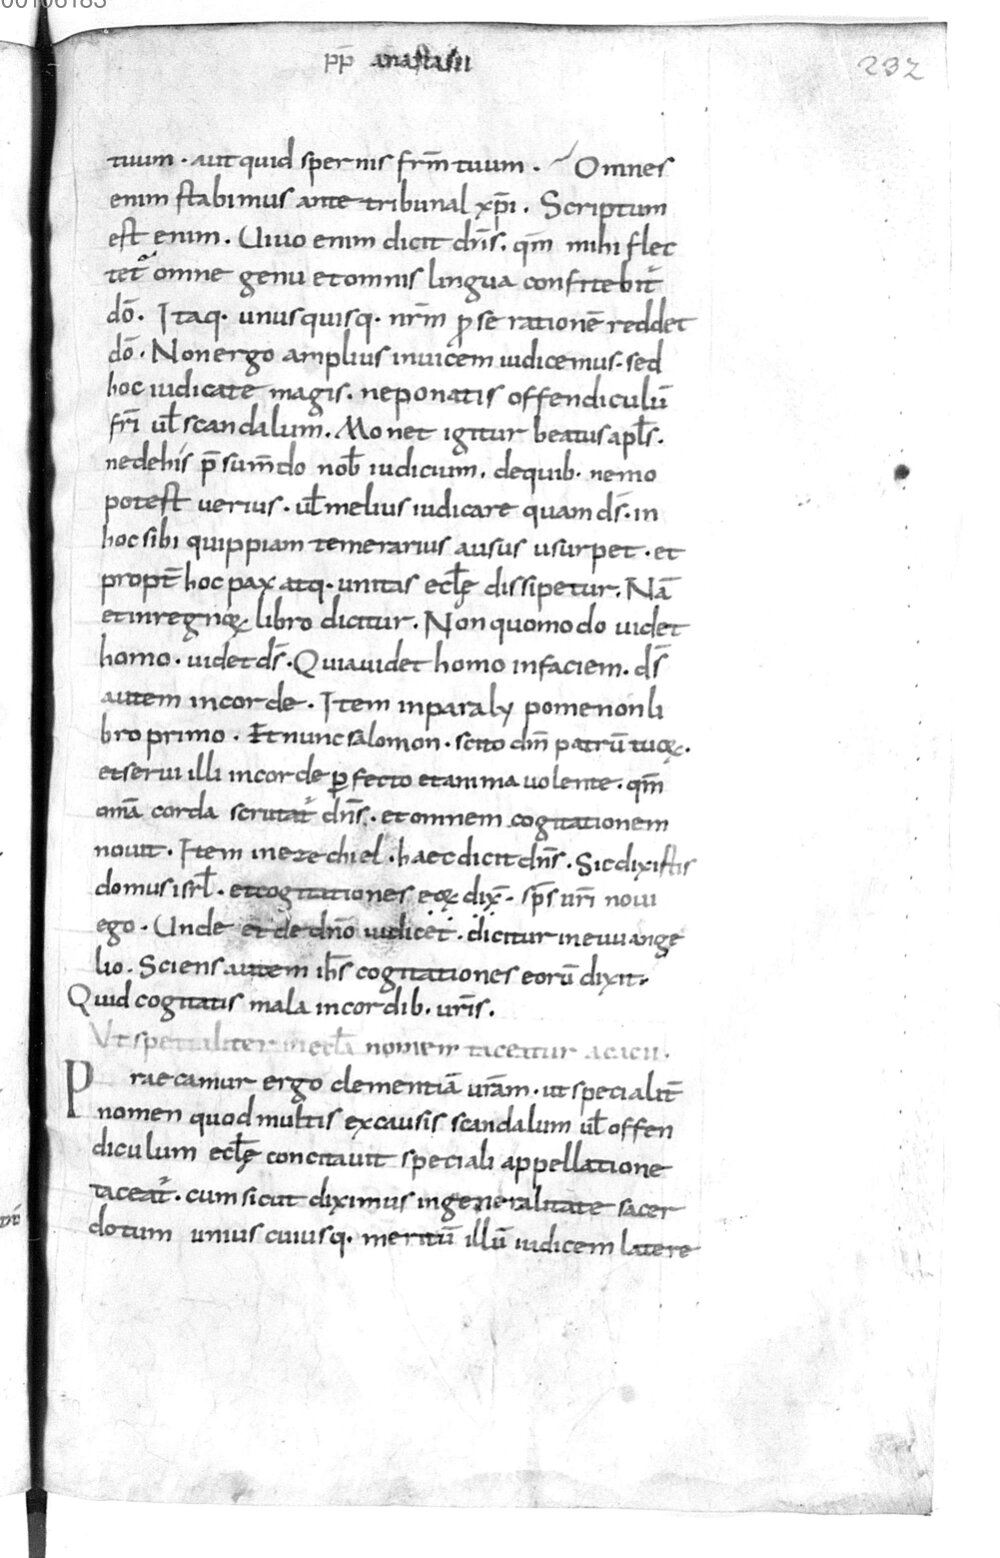 00106183
pp̄ anastasii
232
tuum · aut quid spernis fr̄m tuum · Omnes
enim stabimus ante tribunal xp̄i . Scriptum
est enim . Uiuo enim dicit dn̄s . qm̄ mihi flec
tet᷑ omne genu et omnis lingua confitebit᷑
dō . Itaq· unusquisq· nr̄m ꝓ se rationē reddet
dō . Non ergo amplius inuicem iudicemus · sed
hoc iudicate magis . ne ponatis offendiculū
fr̄i ul̄ scandalum . Monet igitur beatus apl̄s .
ne de his p̄sum̄do nob̄ iudicium . de quib· nemo
potest uerius · ul̄ melius iudicare quam ds̄ · in
hoc sibi quippiam temerarius ausus usurpet · et
propt̄ hoc pax atq· unitas ecl̄ę dissipetur . Nā
et in regnoꝝ libro dicitur . Non quomodo uidet
homo · uidet ds̄ · Quia uidet homo in faciem . ds̄
autem in corde . Item in paralypomenon li
bro primo · Et nunc salomon · scito dm̄ patrū tuoꝝ .
et serui illi in corde ꝑfecto et amma uolente · qm̄
om̄a corda scrutat᷑ dn̄s . et omnem cogitationem
nouit · Item in ezechiel · haec dicit dn̄s . Sic dixistis
domus isrl̄ . et cogitationes eoꝝ dix̄ · sp̄s ur̄i noui
ego · Unde et de dn̄o iudicet . dicitur in euuange
lio . Sciens autem ih̄s cogitationes eorū dixit ·
Quid cogitatis mala in cordib· ur̄is .
Ut specialiter in ecl̄a nomen taceatur acacii .
Praecamur ergo clementiā ur̄am · ut specialit̄
nomen quod multis ex causis scandalum ul̄ offen
diculum ecl̄ę concitauit speciali appellatione
taceat᷑ · cum sicut diximus in generalitate sacer
dotum unius cuiusq· meritū illū iudicem latere